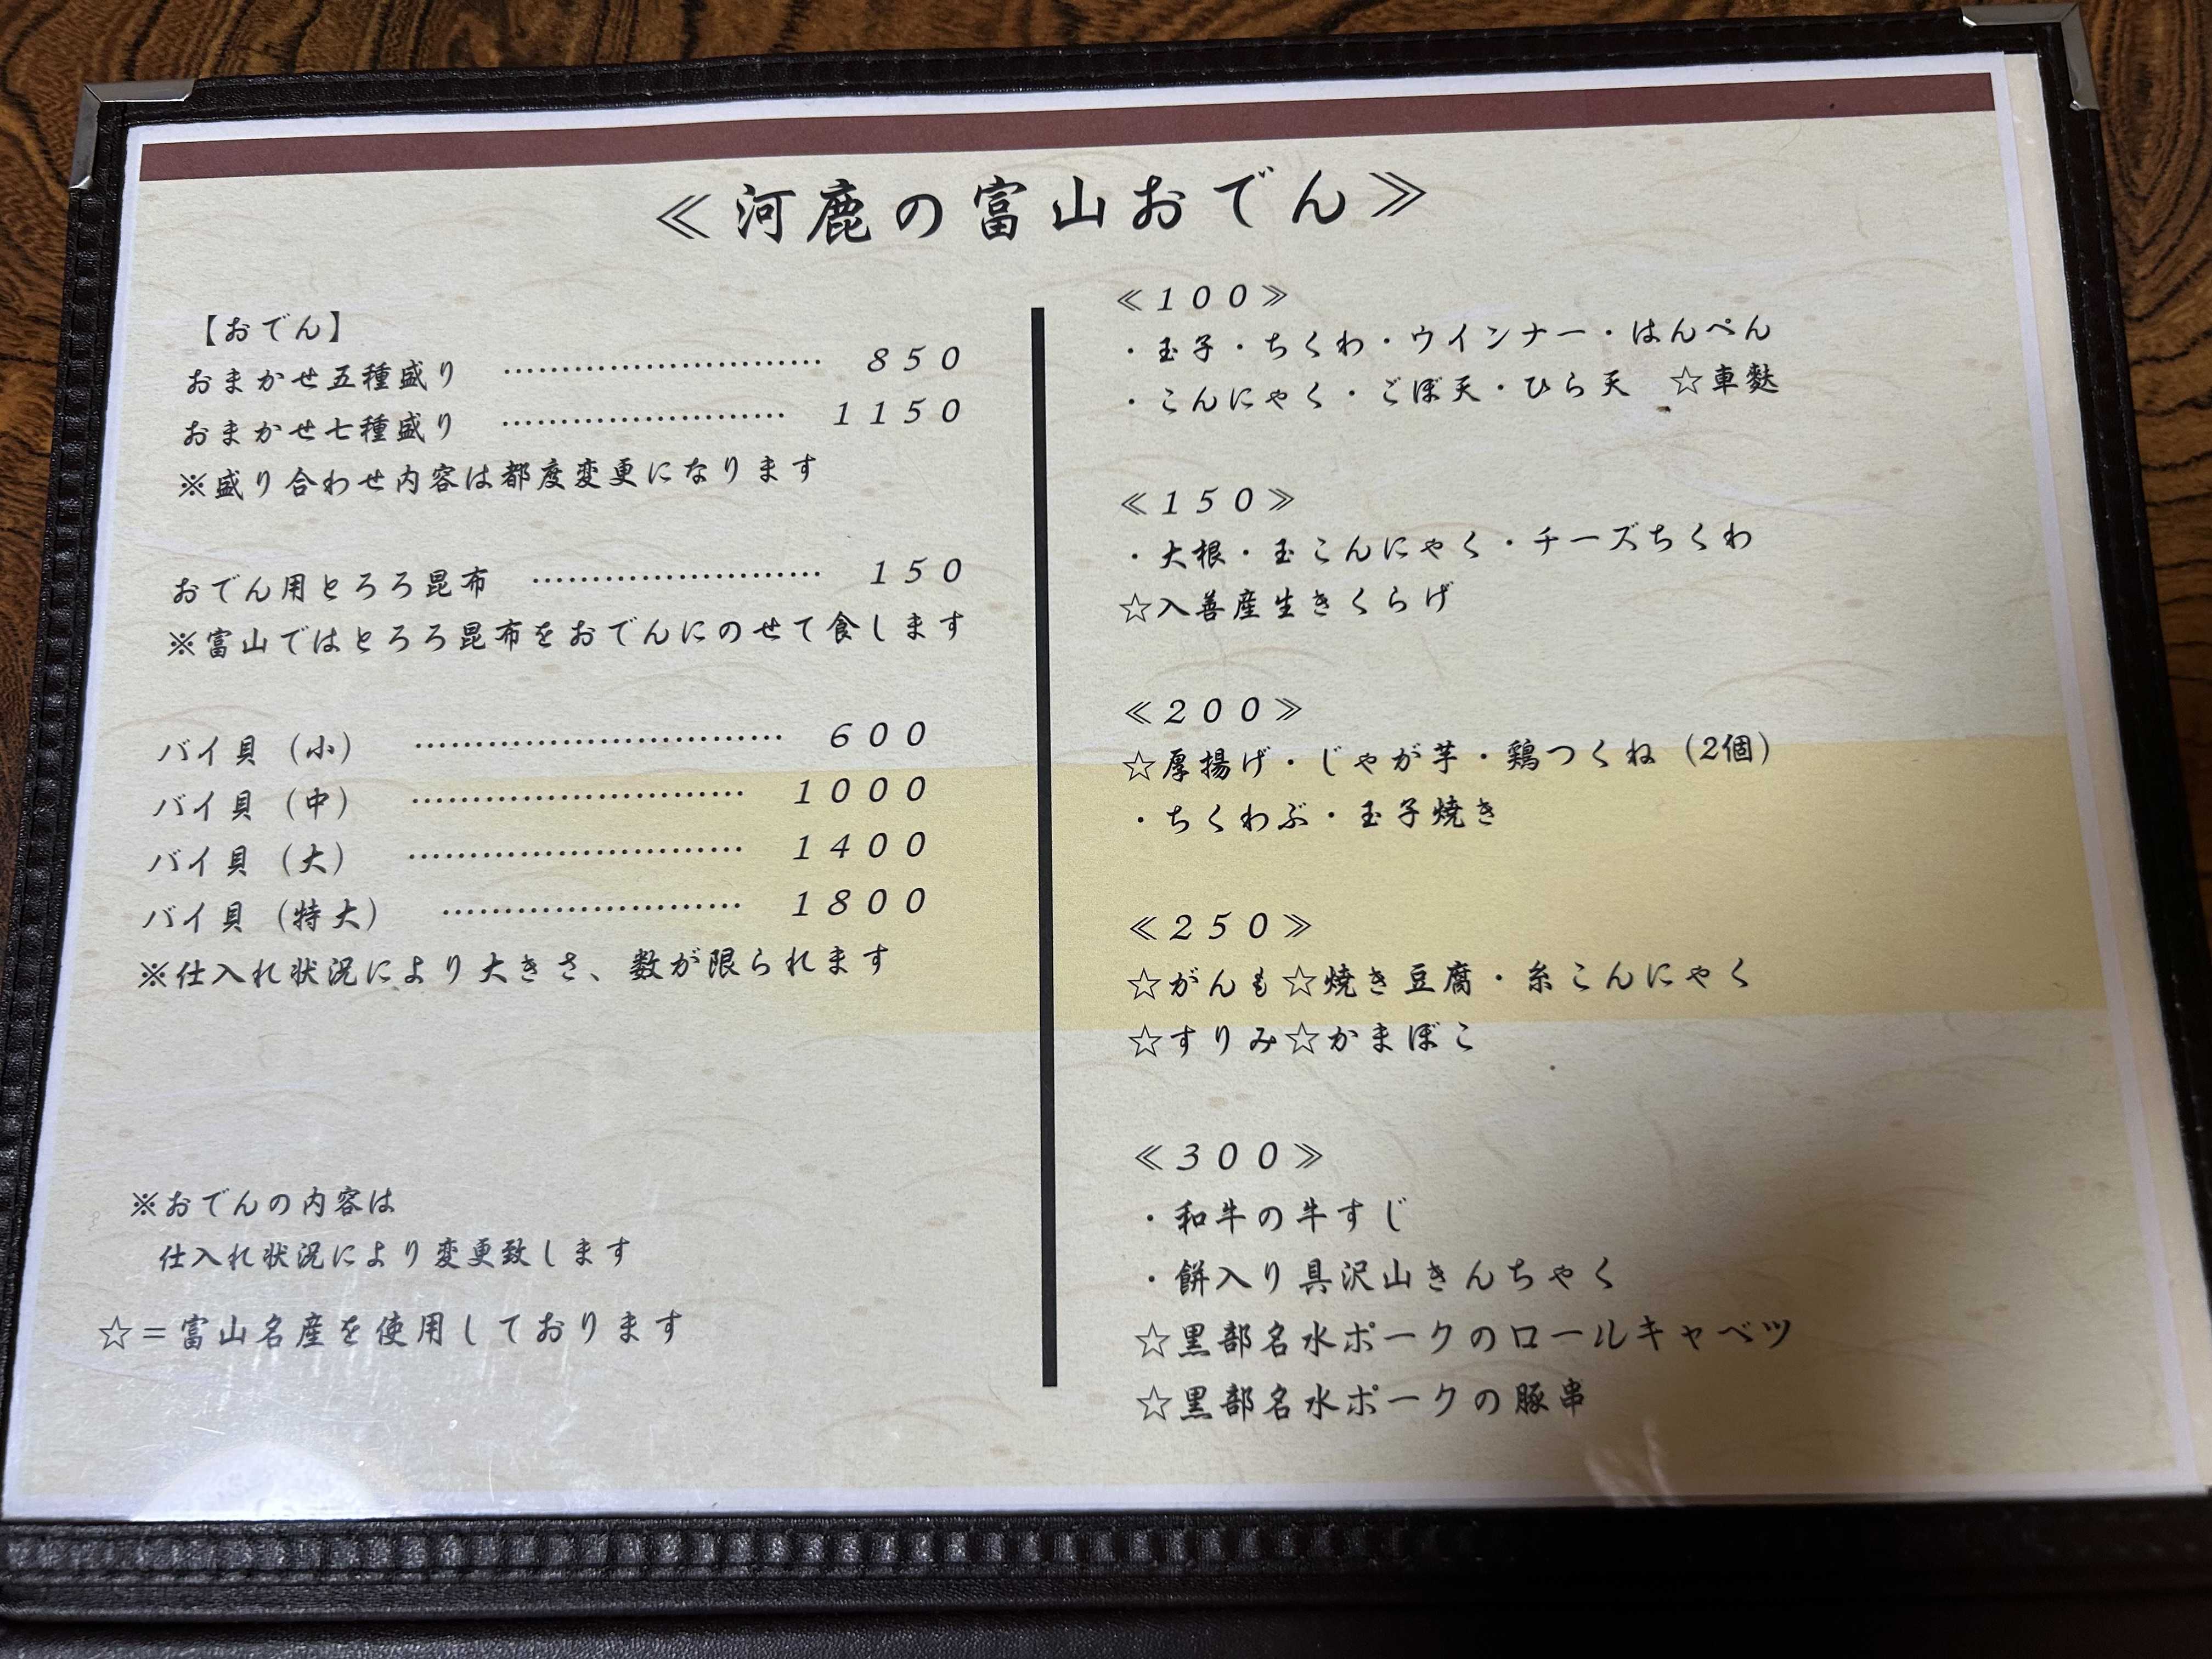 ≪河鹿の富山おでん≫
【おでん】
おまかせ五種盛り ………………………… 850
おまかせ七種盛り ……………………… 1150
※盛り合わせ内容は都度変更になります
おでん用とろろ昆布 ……………………… 150
※富山ではとろろ昆布をおでんにのせて食します
バイ貝（小） …………………………… 600
バイ貝（中） ………………………… 1000
バイ貝（大） ………………………… 1400
バイ貝（特大） ……………………… 1800
※仕入れ状況により大きさ、数が限られます
※おでんの内容は
仕入れ状況により変更致します
☆＝富山名産を使用しております
≪100≫
・玉子・ちくわ・ウインナー・はんぺん
・こんにゃく・ごぼ天・ひら天　☆車麩
≪150≫
・大根・玉こんにゃく・チーズちくわ
☆入善産生きくらげ
≪200≫
☆厚揚げ・じゃが芋・鶏つくね（2個）
・ちくわぶ・玉子焼き
≪250≫
☆がんも☆焼き豆腐・糸こんにゃく
☆すりみ☆かまぼこ
≪300≫
・和牛の牛すじ
・餅入り具沢山きんちゃく
☆黒部名水ポークのロールキャベツ
☆黒部名水ポークの豚串